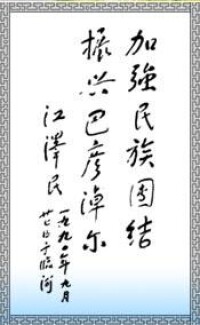 加強民族团结
振兴巴彦淖尔
江澤民
一九九〇年九月
廿日于臨河